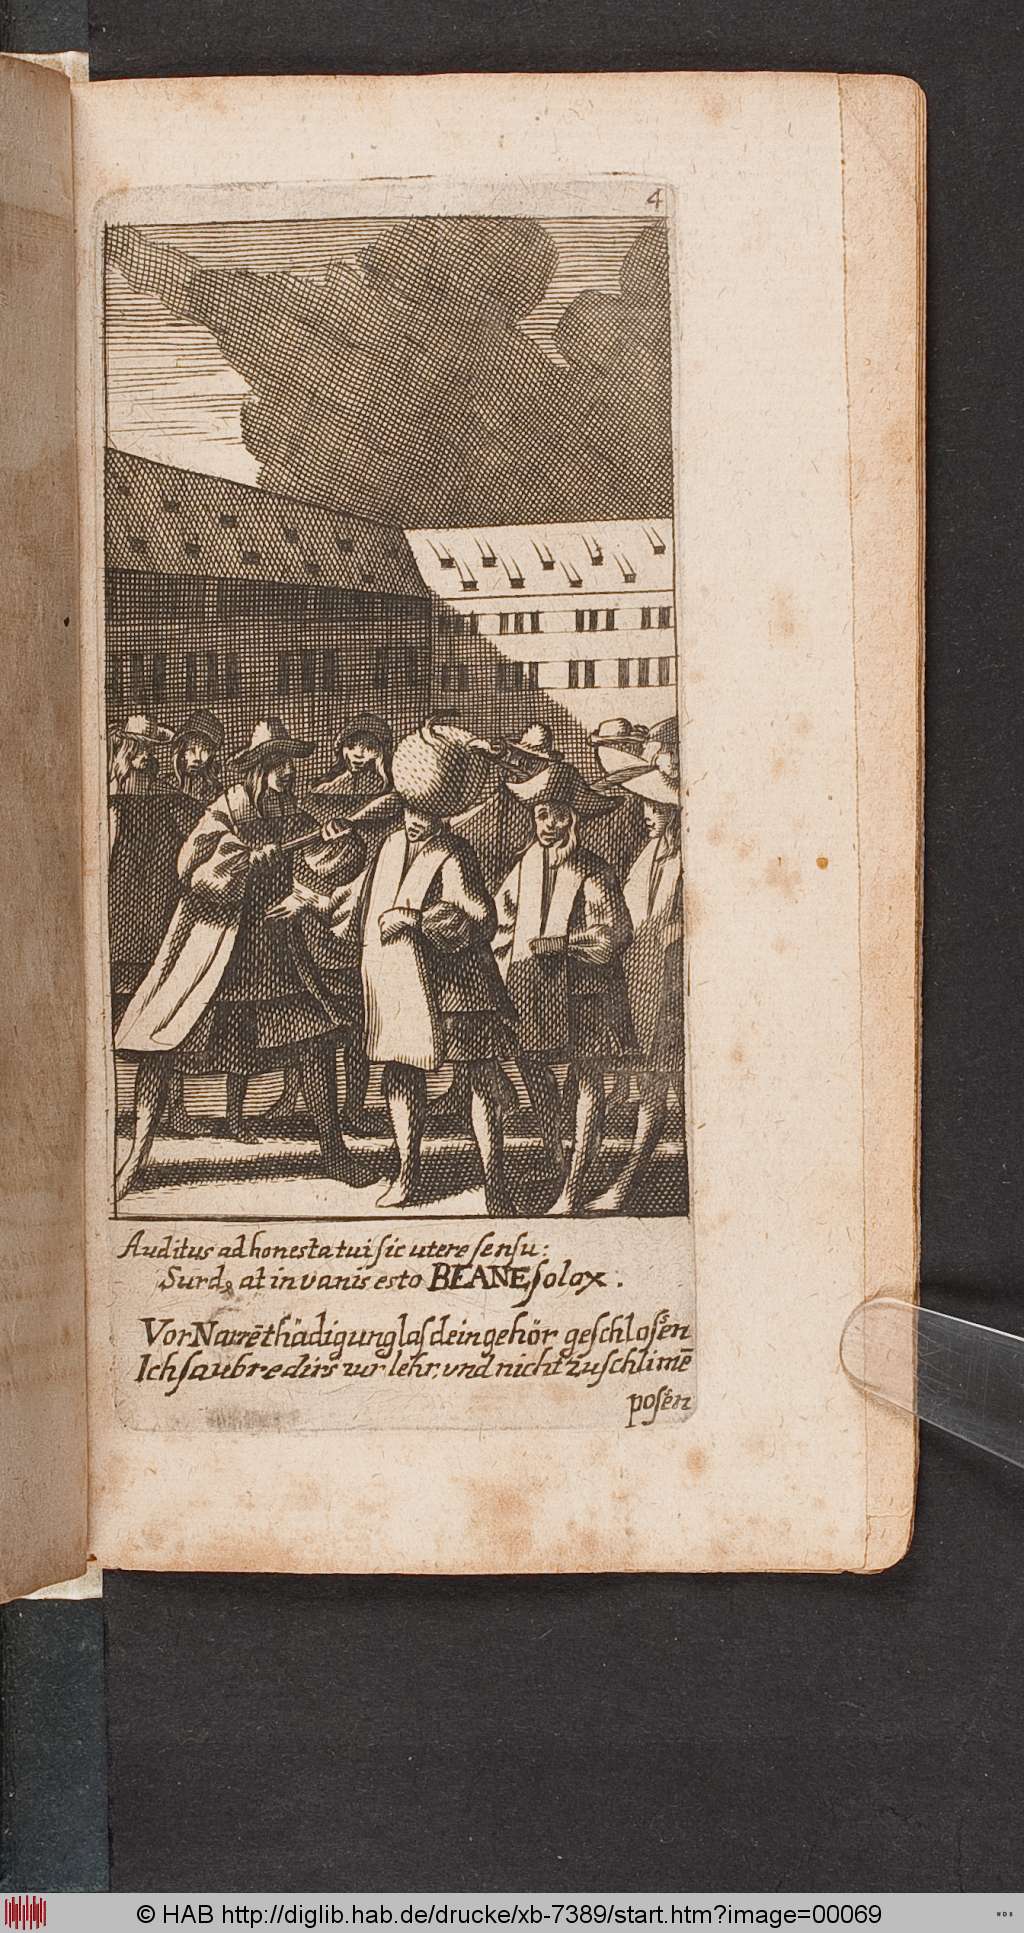 4
Auditus ad honesta tui sic utere sensu:
Surdꝰ at in vanis esto BEANE solax.
Vor Narrēthädigung las dein gehör geschlosen
Ich saubre dirs zur lehr, vnd nicht zu schlimē
posen
© HAB http://diglib.hab.de/drucke/xb-7389/start.htm?image=00069